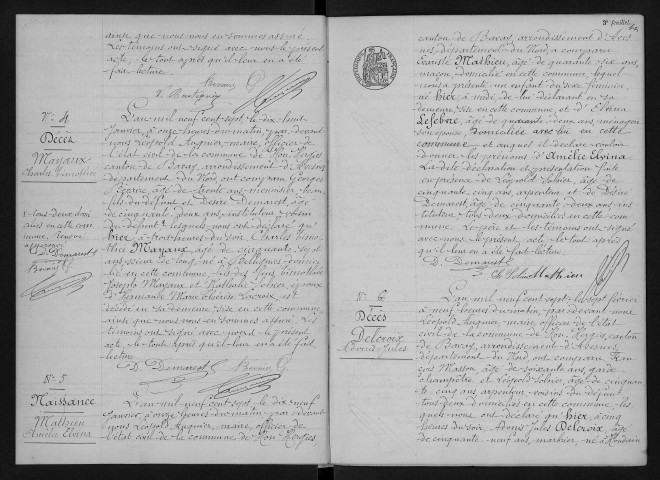 ainsi que nous nous en sommes assuré.
Les témoins ont signé avec nous le présent
acte, le tout après qu'il leur en a été
fait lecture.
N° 4
Décès
Mayaux
Charles Timothée
L'an mil neuf cent sept le dix huit
Janvier, à onze heures du matin, par devant
nous Léopold Auquier, maire, officier de
l'état civil de la commune de Hon-Hergies
canton de Bavay, arrondissement d'Avesnes
département du Nord, ont comparu Georges
âgé de trente ans, menuisier,
fils du défunt et Désiré Demarest, âgé
de cinquante deux ans, instituteur, voisin
du défunt, lesquels nous ont déclaré qu'
hier à trois heures du soir, Charles Timo-
thée Mayaux, âgé de cinquante
ans, scieur de long, né à domici-
lié en cette commune, fils des feus Timothée
Joseph Mayaux et Nathalie époux
d' Marie Lacroix, est
décédé en sa demeure sise en cette commune
ainsi que nous nous en sommes assuré. Les
témoins ont signé avec nous le présent
acte, le tout après qu'il leur en a été fait
lecture.
tous deux domi-
ciliés en cette com-
mune. Renvoi
approuvé
D. Demarest
D. Demarest
N° 5
Naissance
Mathieu
Amélie Elvina
L'an mil neuf cent sept, le dix neuf
Janvier, à onze heures du matin, par devant
nous Léopold Auquier, maire, officier de
l'état civil de la commune de Hon-Hergies
3e feuillet
canton de Bavay, arrondissement d'Aves-
nes, département du Nord, a comparu
Evariste Mathieu, âgé de quarante six ans,
maçon, domicilié en cette commune, lequel
nous a présenté un enfant du sexe féminin,
né hier, à midi, de lui déclarant en sa
demeure sise en cette commune, et d'Elvina
Lefebre, âgée de quarante deux ans, ménagère
son épouse, domiciliée avec lui en cette
commune et auquel il a déclaré vouloir
donner les prénoms d'Amélie Elvina
La dite déclaration et présentation faite
en présence de Léopold âgé de
cinquante cinq ans, arpenteur et de Désiré
Demarest, âgé de cinquante deux ans, ins-
tituteur, tous deux domiciliés en cette com-
mune. Le père et les témoins ont signé
avec nous le présent acte, le tout après
qu'il leur en a été fait lecture.
D. Demarest
Mathieu
N° 6
Décès
Delcroix
Jules
L'an mil neuf cent sept, le sept février
à neuf heures du matin, par devant nous
Léopold Auquier, maire, officier de l'état
civil de la commune de Hon-Hergies, canton
de Bavay, arrondissement d'Avesnes
département du Nord, ont comparu Fran-
çois Masson, âgé de soixante ans, garde
champêtre, et Léopold âgé de cinquan-
te cinq ans, arpenteur, voisins du défunt
tous deux domiciliés en cette commune, les-
quels nous ont déclaré qu'hier, à cinq
heures du soir, Jules Delcroix, âgé
de cinquante neuf ans, marbrier, né à Houdain